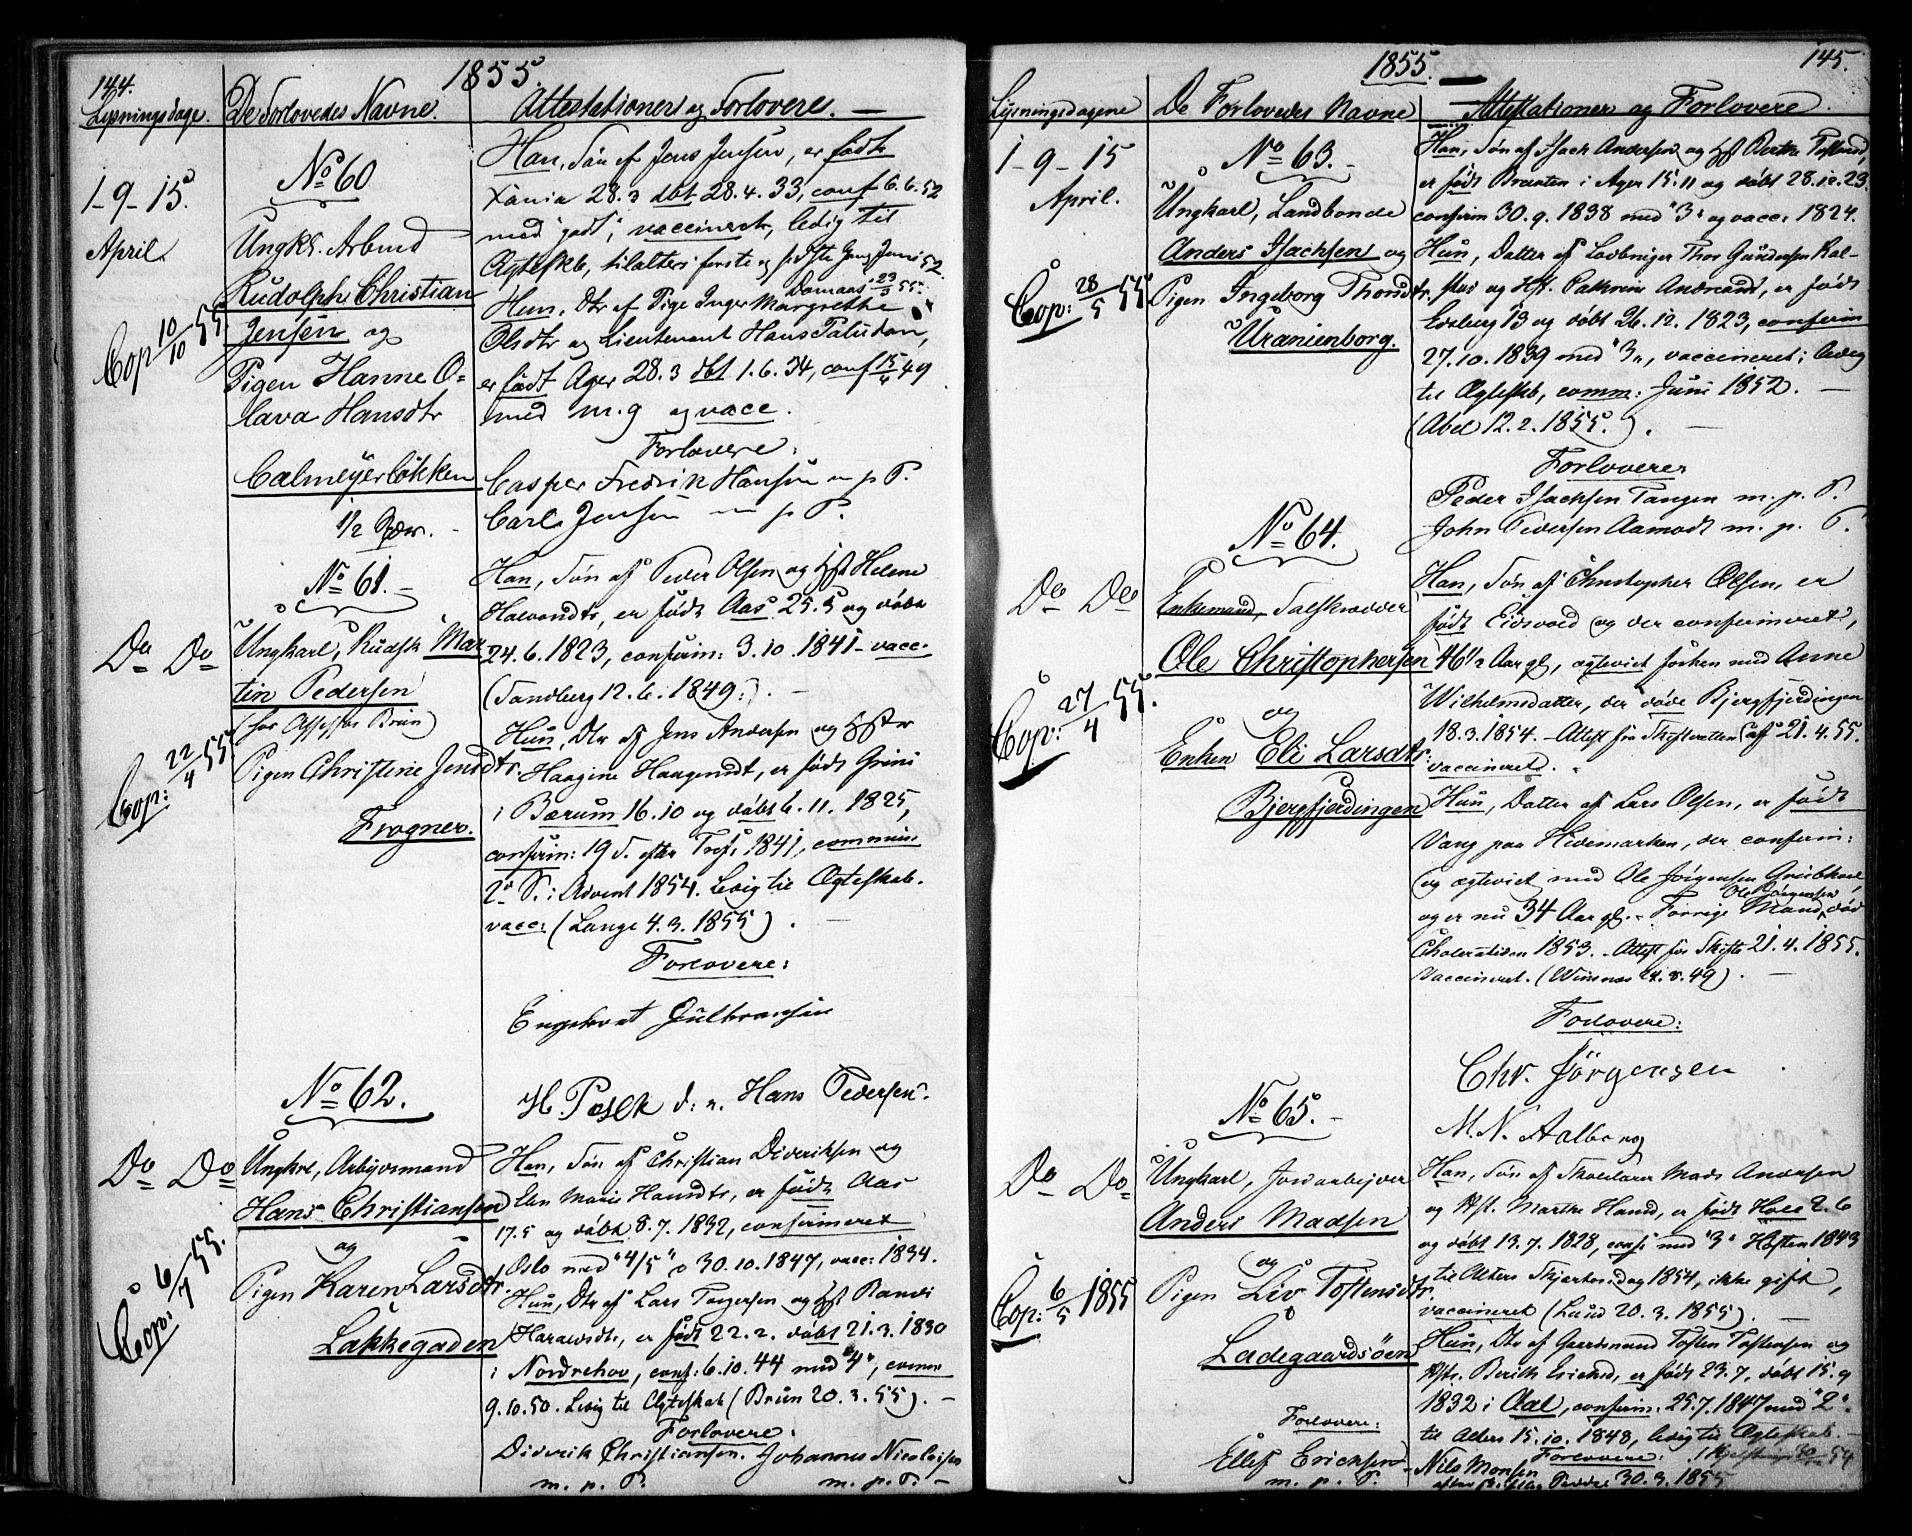 144.
1855.
Lysningsdage.
De Forlovedes Navne.
Attestationer og Forlovere.
1-9-15.
April.
Cop 10/10 55.
No 60
Ungkl. Arbmd
Rudolph Christian
Jensen og
Pigen Hanne O=
lava Hansdtr
Calmeyerløkken
1/2 Spdr.
Han, Søn af Jens Jensen, er født
Xania 28.3 dbt 28.4.33, conf 6.6.52
med godt, vaccineret, ledig til
Ægteskb, tilalters første og sidste Gang Juni 52.
Hun, Dtr af Pige Inger Margrethe
Olsdtr og Lieutenant Hans Paludan,
er født Ager 28.3 dbt 1.6.34, conf 15/4 49
med m.g og vacc.
Forlovere:
Casper Fredrik Hansen m p P.
Carl Jensen m p P.
Do Do
Cop: 22/4 55
No 61.
Ungkarl, Kudsk Mar
tin Pedersen
(hos Assessor Brun)
Pigen Christine Jensdtr.
Frogner.
Han, Søn af Peder Olsen og Hst Helene
Halvorsdtr, er født Aas 25.5 og døbt
24.6.1823, confirm: 3.10.1841 - vacc.
(Sandberg 12.6.1849.)
Hun, Dtr af Jens Andersen og Hstr
Haagine Haagensdt, er født Grini
i Bærum 16.10 og døbt 6.11.1825,
confirm: 19 S. efter Tref. 1841, commun
2. S. i Advent 1854. Ledig til Ægteskab.
vacc: (Lange 4.3.1855).
Forlovere:
Engebret Gulbransen
H. Posek d: n. Hans Pedersen.
Do Do
Cop: 6/7 55.
No 62.
Ungkrl, Arbejdsmand
Hans Christiansen
og
Pigen Karen Larsdtr.
Lakkegaden
Han, Søn af Christian Dideriksen og
Elen Marie Hansdtr, er født Aas
17.5 og døbt 8.7.1832, confirmeret
Oslo med "4/5" 30.10.1847, vacc: 1834.
Hun, Dtr af Lars Torgersen og Hst Randi
Haraldsdtr, er født 22.2. døbt 21.3.1830
i Norderhov, conf: 6.10.44 med "4", comm
9.10.50. Ledig til Ægteskab (Brun 20.3.55).
Forlovere:
Diderik Christiansen. Johannes Nicolaisen
m. p. P. m. p. P.
145.
1855.
Lysningsdagene
De Forlovedes Navne
Attestationer og Forlovere.
1-9-15
April.
Cop: 28/5 55
No 63.
Ungkarl, Landbonde
Anders Isachsen og
Pigen Ingeborg Thorsdtr.
Uranienborg.
Han, Søn af Isach Andersen og Hst Berthe
er født Branten i Ager 15.11 og døbt 28.12.23.
confirm 30.9.1838 med "3" og vacc: 1824.
Hun, Datter af Løsbniger Thor Gundersen Kal-
stad og Hst. Cathrine Andreasd, er født
Eidsberg 13 og døbt 26.12.1823, confirm
27.10.1839 med "3", vaccineret; ledig
til Ægteskb, comm: Juni 1852.
(Abel 12.2.1855.)
Forlovere
Peder Isachsen Tangen m. p. P.
John Pedersen Aamodt m. p. P.
Do Do
Cop: 27/4 55.
No 64.
Enkemand,
Ole Christophersen
og
Enken Eli Larsdtr.
Bjergfjerdingen
Han, Søn af Christopher Olsen, er
født Eidsvold og der confirmeret,
46 1/2 Aar gl, ægteviet før med Anne
Wilhelmsdatter, der døde Bjergfjerdingen
18.3.1854. - Attest fra Skifteretten af 21.4.55.
vaccineret.
Hun, Datter af Lars Olsen, er født
Vang paa Hedemarken, der confirm:
og ægteviet med Ole Jørgensen
og er nu 34 Aar gl. - Forrige Mand, Ole Jørgensen, død
Choleratiden 1853. - Attest fra Skifte 21.4.1855.
Vaccineret. (Winsnes 24.8.49).
Forlovere:
Chr. Jørgensen
M. N. Aalborg
Do Do
Cop: 6/5 1855
No 65.
Ungkarl, Jordarbejder
Anders Madsen
og
Pigen Liv Tostensdtr.
Ladegaardsøen
Forlovere:
Ellef Ericksen
m. p. P.
Han, Søn af Skolelærer Mads Andersen
og Hst. Marthe Hansd, er født Hole 2.6
og døbt 13.7.1828, conf: med "3" Høsten 1843
til Alters Skjærtorsdag 1854, ikke gift,
vaccineret (Lund 20.3.1855).
Hun, Dtr af Gaardmand Tosten Tostensen og
Hstr. Berith Ericksd, er født 23.7, døbt 15.9
1832 i Aal, confirm: 25.7.1847 med "2".
til Alters 15.10.1848, ledig til Ægteskab.
Forlovere:
Nils Monsen
30.3.1855